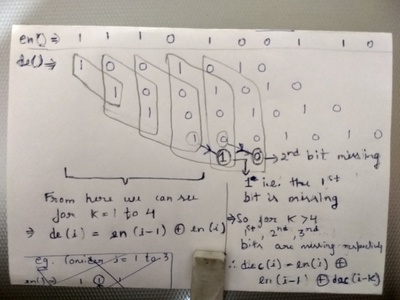 en() ⇒ 1 1 1 0 1 0 0 1 1 0
de() ⇒ 1 0 0 1 0
1 0 0 1 0
1 0 0 1 0
1 0 0 1 0
1 0
→ 2nd bit missing
1 i.e. the 1st
bit is missing
From here we can see
for K = 1 to 4
⇒ de(i) = en(i-1) ⊕ en(i)
⇒ So for K > 4
1st, 2nd, 3rd
bits are missing respectively
∴ dec(i) = en(i) ⊕
en(i-1) ⊕ dec(i-K)
eg. Consider i = 1 to 3
en() ⇒ 1 1 1